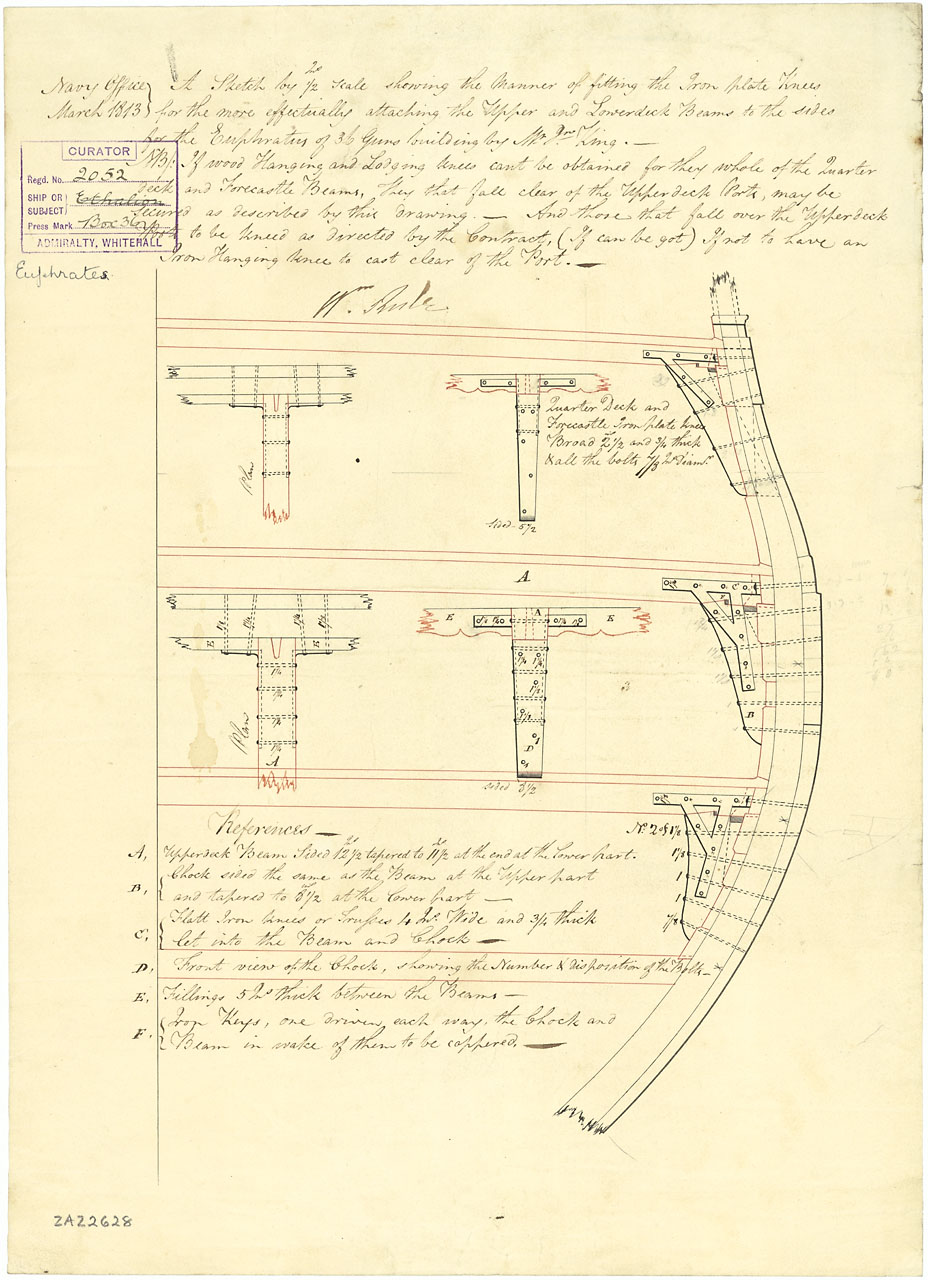 Navy Office
March 1813
A Sketch by 2/8 1/2 Scale showing the Manner of fitting the Iron plate Knees
for the more effectually attaching the Upper and Lowerdeck Beams to the sides
for the Euphratus of 36 Guns building by Mr. Jno. King. —
NB: If wood Hanging and Lodging knees cant be obtained for the whole of the Quarter
deck and Forecastle Beams, They that fall clear of the Upperdeck Ports, may be
secured as described by this drawing. — And those that fall over the Upperdeck
Ports to be kneed as directed by the Contract, (If can be got) If not to have an
Iron Hanging knee to cast clear of the Port. —
CURATOR
Regd. No. 2052
SHIP OR SUBJECT} Ethalion
Press Mark Box 36
ADMIRALTY, WHITEHALL
Euphrates.
Wm. Rule
Plan
Quarter Deck and
Forecastle Iron plate knees
Broad 2 1/2 and 3/4 thick
& all the bolts 7/8 Ins Diamr.
sided 5 1/2
A
E
E
Plan
A
E
A
E
1 1/4
1 1/4
1 1/4
1 1/4
D
sided 8 1/2
C
F
B
No. 2 of 1 1/8
1 1/8
1
1
7/8
References —
A, Upperdeck Beam Sided 12 1/2 tapered to 11 1/2 at the end at the lower part.
B, Chock sided the same as the Beam at the Upper part
and tapered to 8 1/2 at the Lower part —
C, Flatt Iron knees or Trusses 4 Ins. Wide and 3/4 thick
let into the Beam and Chock —
D, Front view of the Chock, showing the Number & disposition of the Bolts —
E, Fillings 5 Ins thick between the Beams —
F, Iron Keys, one driven each way, the Chock and
Beam in wake of them to be coppered. —
ZAZ2628